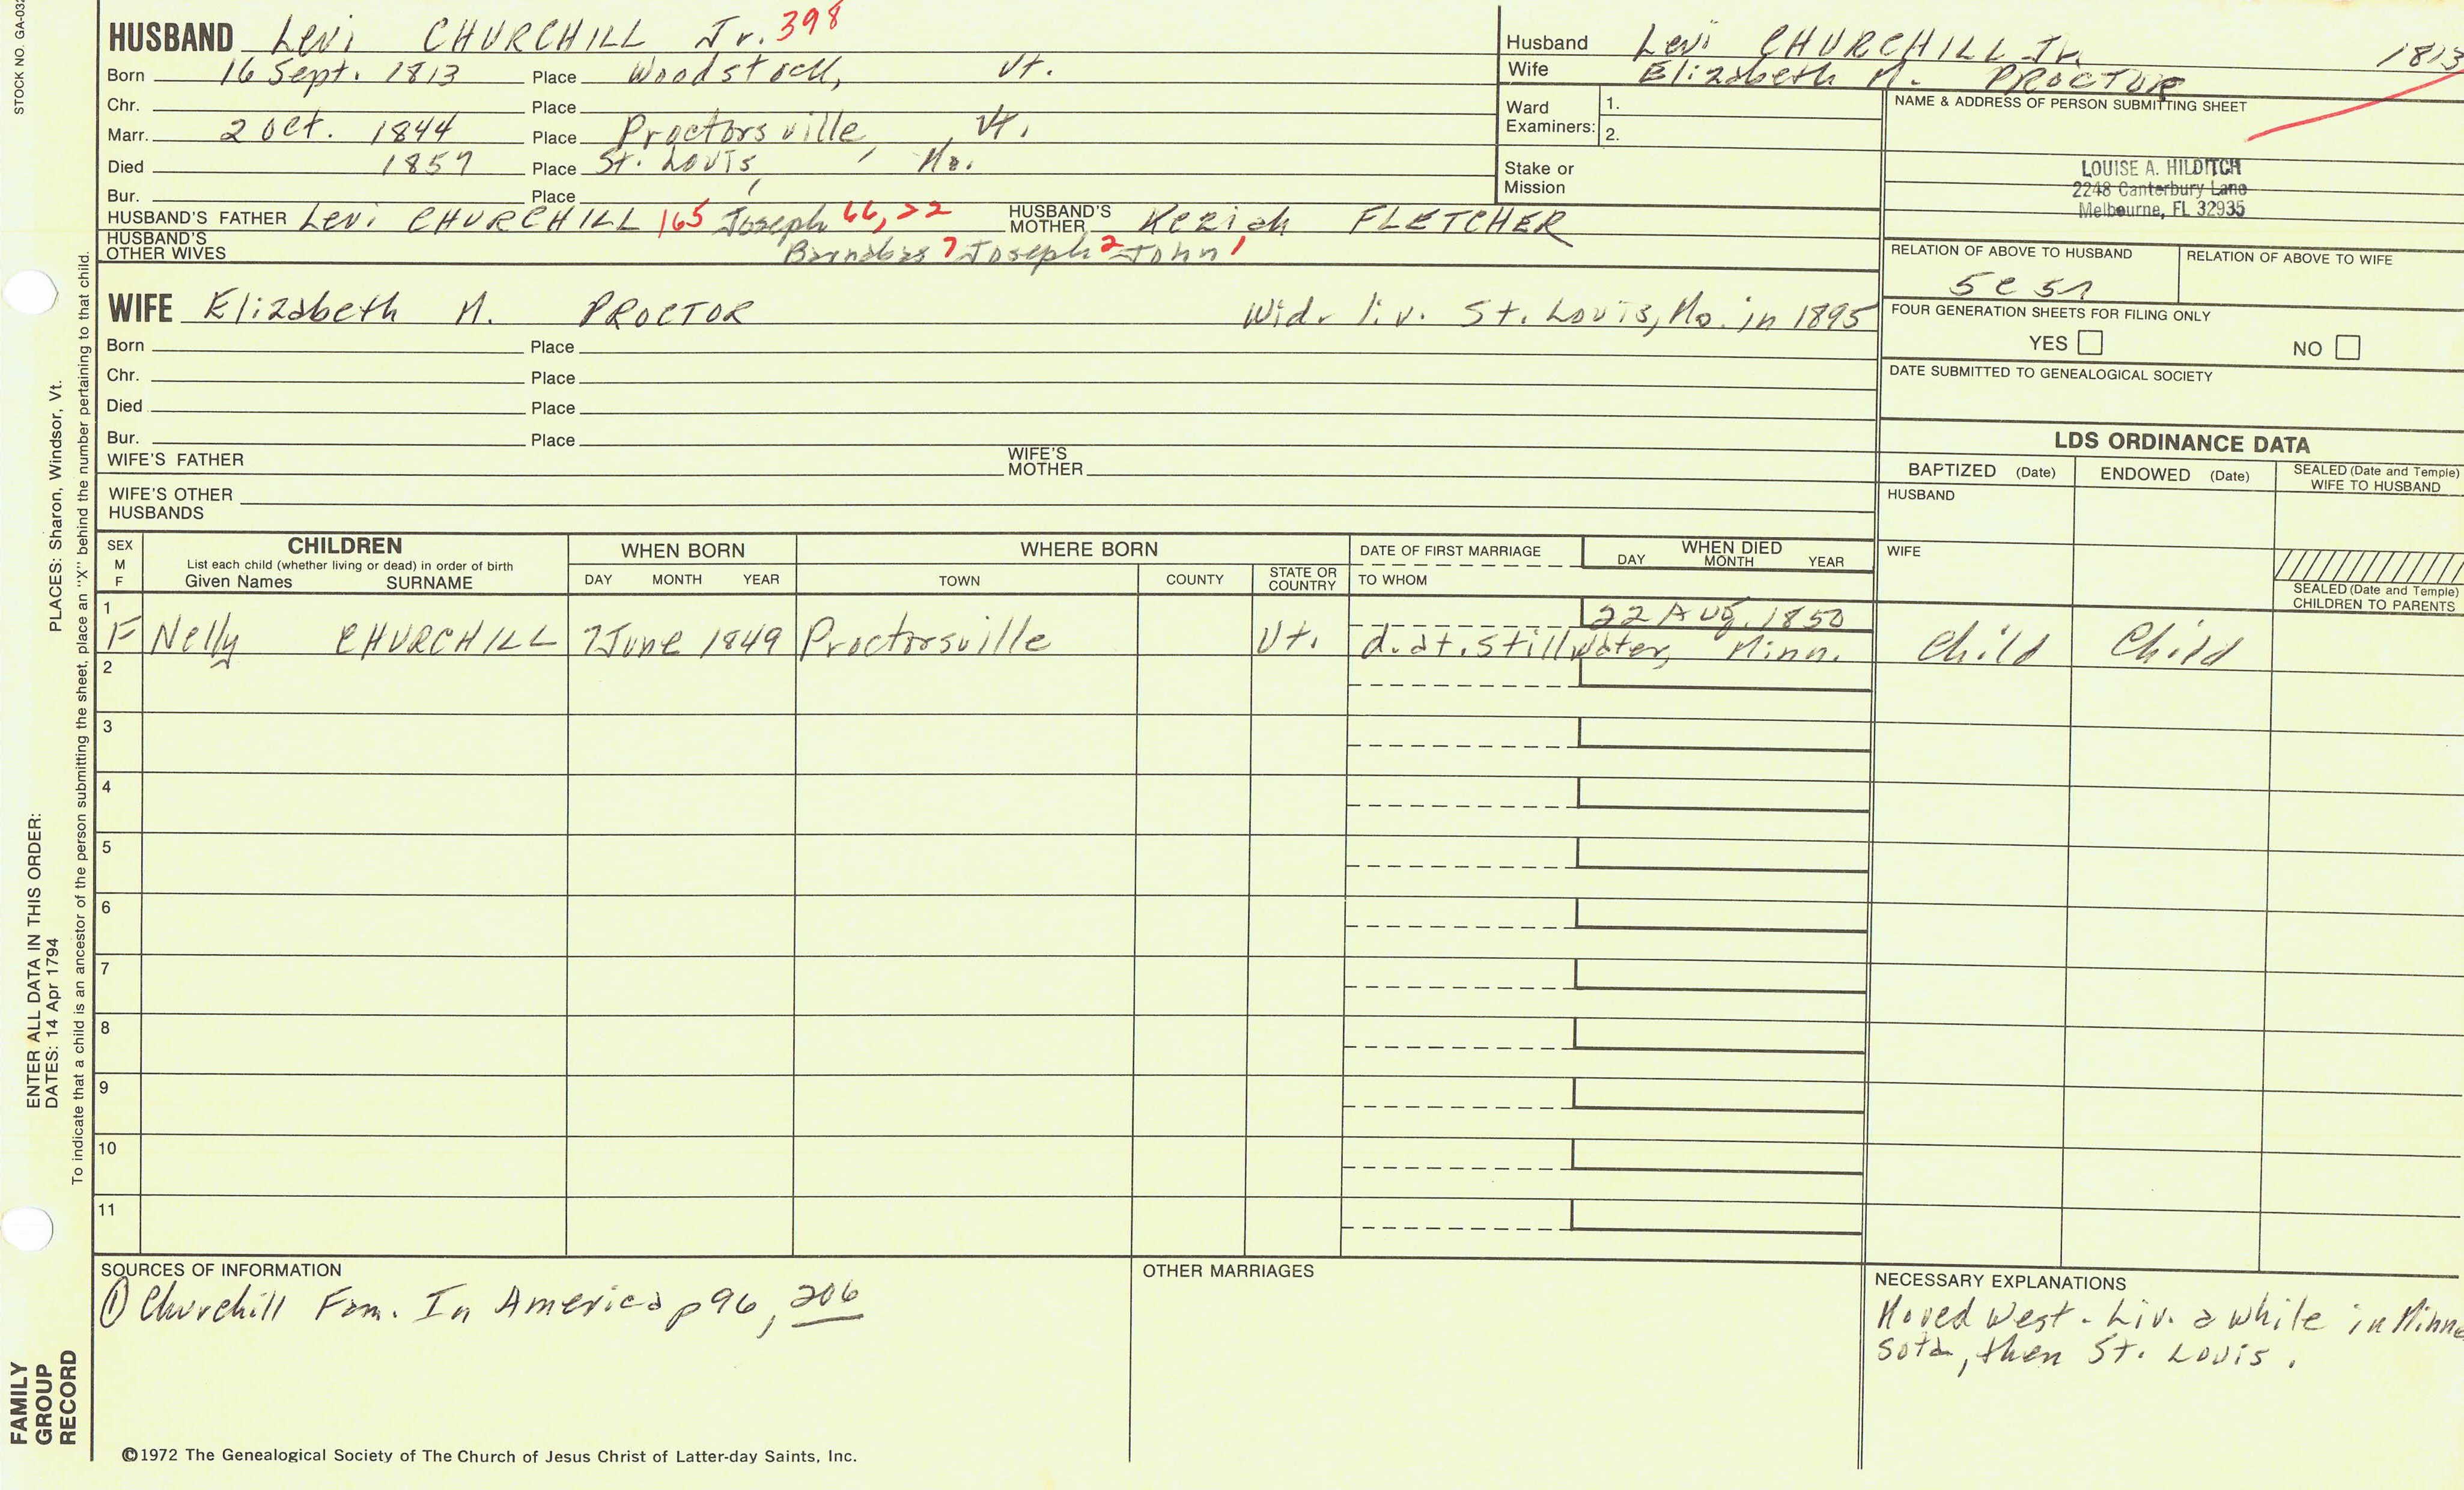 STOCK NO. GA-032
HUSBAND Levi CHURCHILL Jr. 398
Born 16 Sept. 1813 Place Woodstock, Vt.
Chr. Place
Marr. 2 Oct. 1844 Place Proctorsville, Vt.
Died 1857 Place St. Louis, Mo.
Bur. Place
HUSBAND'S FATHER Levi CHURCHILL 165 Joseph 66, 22 HUSBAND'S MOTHER Keziah FLETCHER
HUSBAND'S OTHER WIVES Barnabas 7 Joseph 2 John 1
Husband Levi CHURCHILL Jr. 1813
Wife Elizabeth M. PROCTOR
Ward Examiners: 1.
2.
Stake or Mission
NAME & ADDRESS OF PERSON SUBMITTING SHEET
LOUISE A. HILDITCH
2248 Canterbury Lane
Melbourne, FL 32935
RELATION OF ABOVE TO HUSBAND RELATION OF ABOVE TO WIFE
5c5r
FOUR GENERATION SHEETS FOR FILING ONLY
YES NO
DATE SUBMITTED TO GENEALOGICAL SOCIETY
WIFE Elizabeth M. PROCTOR Wid. liv. St. Louis, Mo. in 1895
Born Place
Chr. Place
Died Place
Bur. Place
WIFE'S FATHER WIFE'S MOTHER
WIFE'S OTHER HUSBANDS
LDS ORDINANCE DATA
BAPTIZED (Date) ENDOWED (Date) SEALED (Date and Temple) WIFE TO HUSBAND
HUSBAND
WIFE
SEALED (Date and Temple) CHILDREN TO PARENTS
SEX M F
CHILDREN
List each child (whether living or dead) in order of birth
Given Names SURNAME
WHEN BORN
DAY MONTH YEAR
WHERE BORN
TOWN COUNTY STATE OR COUNTRY
DATE OF FIRST MARRIAGE
TO WHOM
WHEN DIED
DAY MONTH YEAR
1 22 Aug. 1850
F Nelly CHURCHILL 7 June 1849 Proctorsville Vt. d. at. Stillwater, Minn. Child Child
2
3
4
5
6
7
8
9
10
11
SOURCES OF INFORMATION
① Churchill Fam. In America p 96, 206
OTHER MARRIAGES
NECESSARY EXPLANATIONS
Moved West - Liv. a while in Minne
sota, then St. Louis.
©1972 The Genealogical Society of The Church of Jesus Christ of Latter-day Saints, Inc.
FAMILY GROUP RECORD
ENTER ALL DATA IN THIS ORDER:
DATES: 14 Apr 1794
PLACES: Sharon, Windsor, Vt.
To indicate that a child is an ancestor of the person submitting the sheet, place an "X" behind the number pertaining to that child.